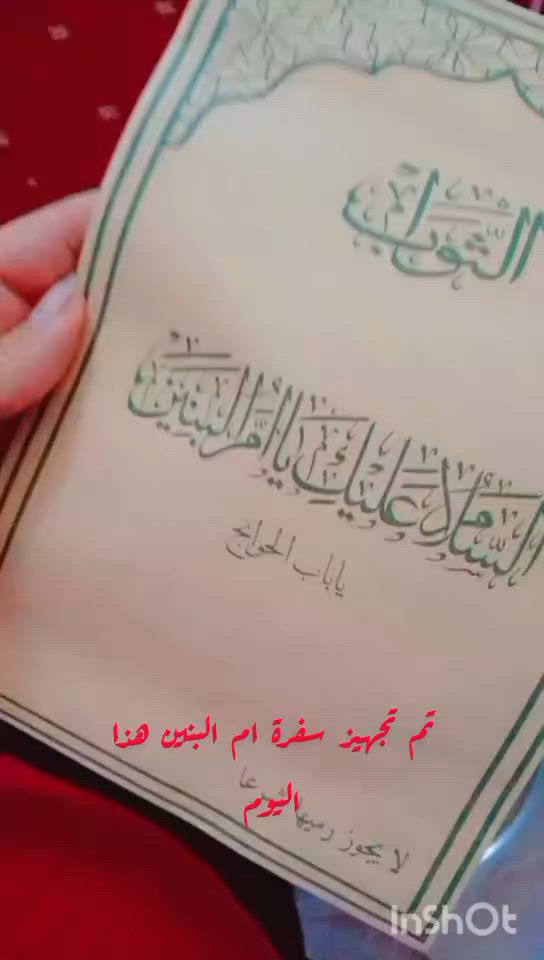 الثواب
السلام عليكِ يا أم البنين
يا باب الحوائج
تم تجهيز سفرة ام البنين هذا
اليوم
لا يجوز رميها شرعا
InShOt